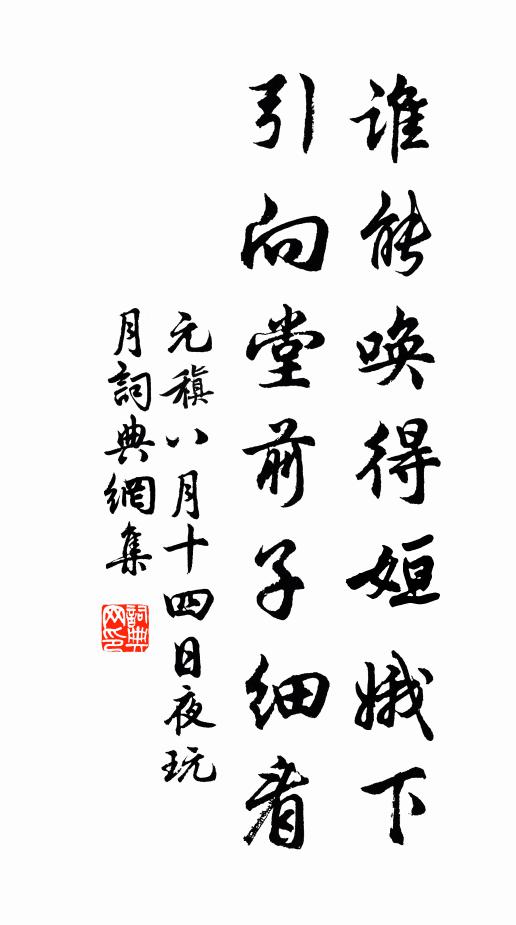 谁能唤得姮娥下
引向堂前子细看
元稹八月十四日夜玩
月詞典網集
詞典
网印